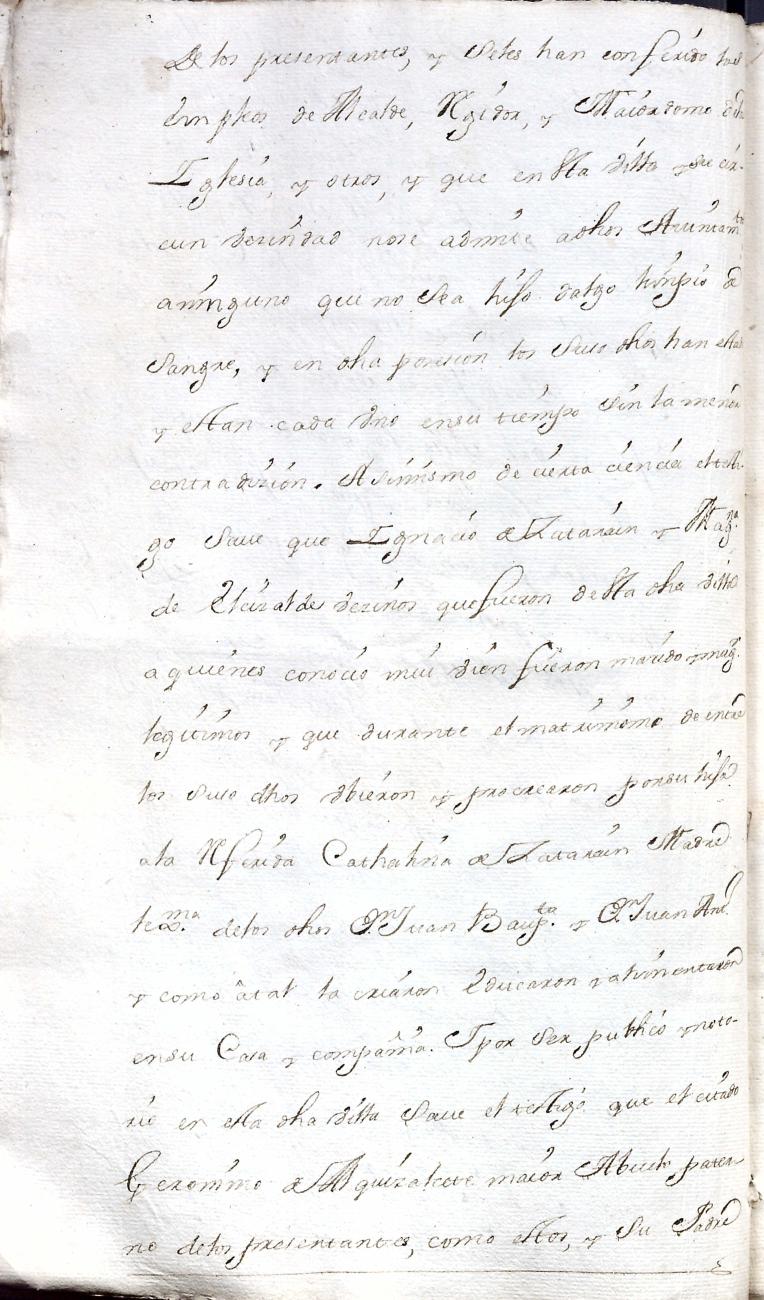 de los presentantes, y seles han conferido los
empleos de Alcalde, Rejidor, y Maiordomo de la
Iglesia, y otros, y que en esta Villa y su cir-
cunvezindad nose admite adhos Aiuntamtos
aninguno que no sea hijo dalgo limpio de
sangre, y en dha posesion los suso dhos han estado
y estan cada uno ensu tiempo sin la menor
contradizion. Asimismo de cierta ciencia el testi-
go save que Ignacio de Zatarain y Magna
de Elcizalde vezinos que fueron de esta dha Villa
aquienes conocio mui bien fueron marido y mugr
legitimos y que durante el matrimonio de entre
los suso dhos ubieron y procrearon porsu hija
ala Referida Cathalina de Zatarain Madre
lexma delos dhos Dn Juan Baupta y Dn Juan Anto
y como atal la criaron Educaron y alimentaron
ensu Casa y compañia. Y por ser publico y noto-
rio en esta dha Villa save el testigo que el citado
Geronimo de Alquizalete maior Abuelo pater-
no delos presentantes, como estos, y su Padre